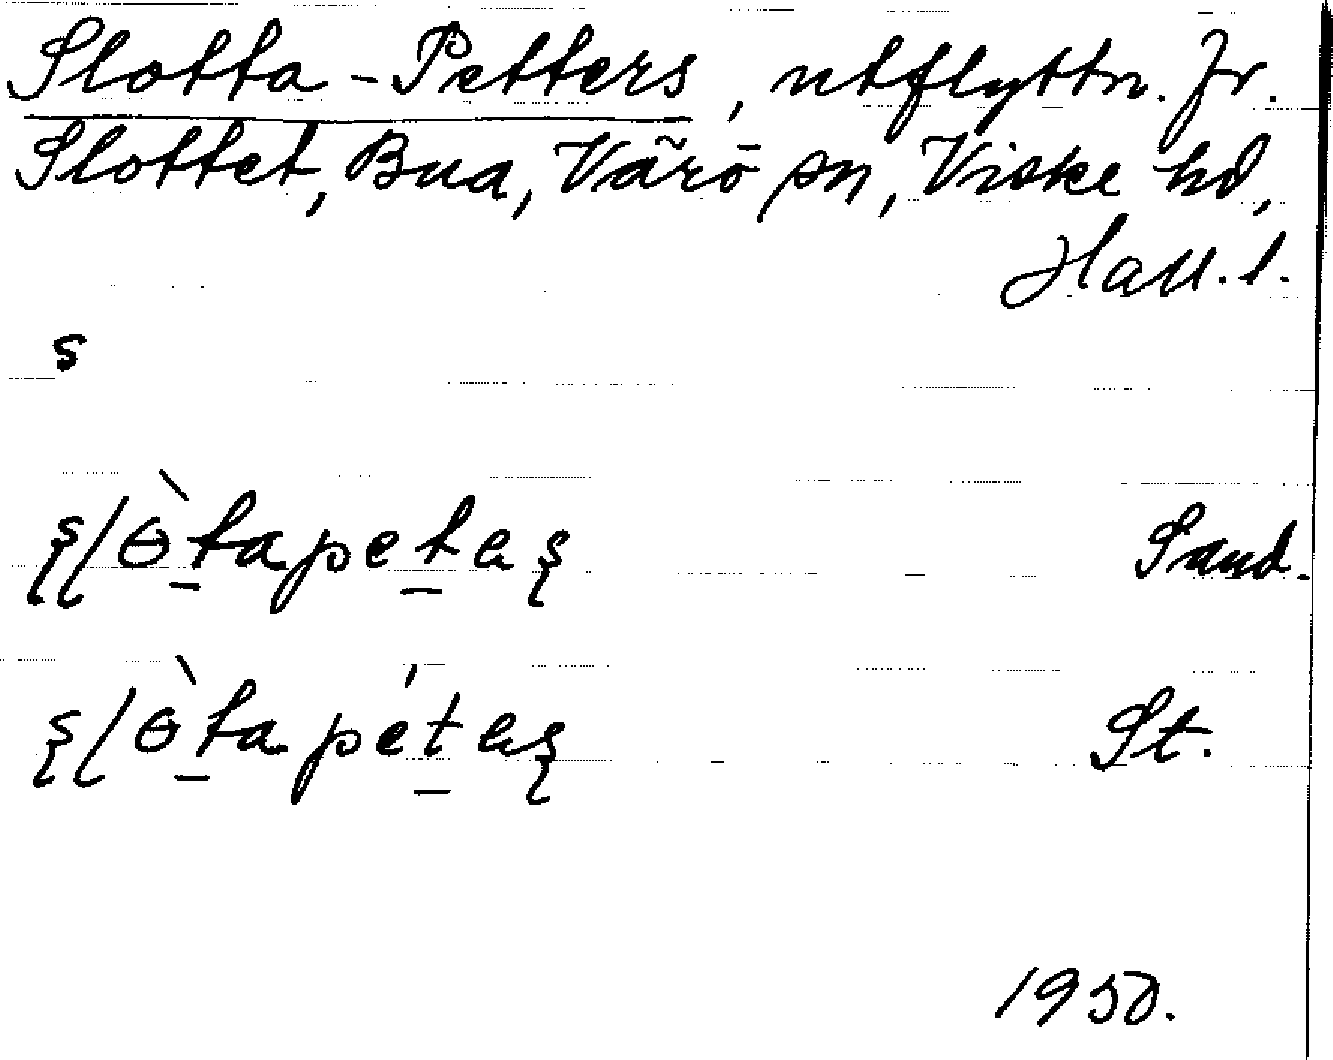 Slotta-Petters, utflyttn. fr.
Slottet, Bua, Värö sn, Viske hd,
Hall. l.
s
Sand.
St.
1950.